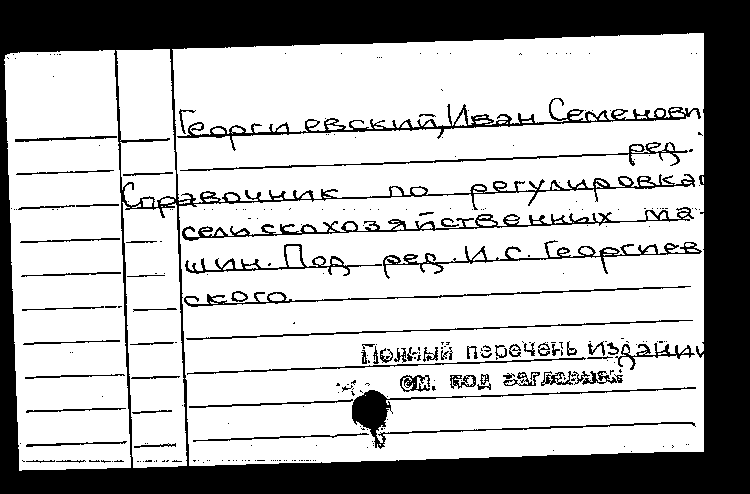 Георгиевский, Иван Семенови
ред.
Справочник по регулировка
сельскохозяйственных ма-
шин. Под ред. И.С. Георгиев
ского.
Полный перечень издании
см. под заглавием